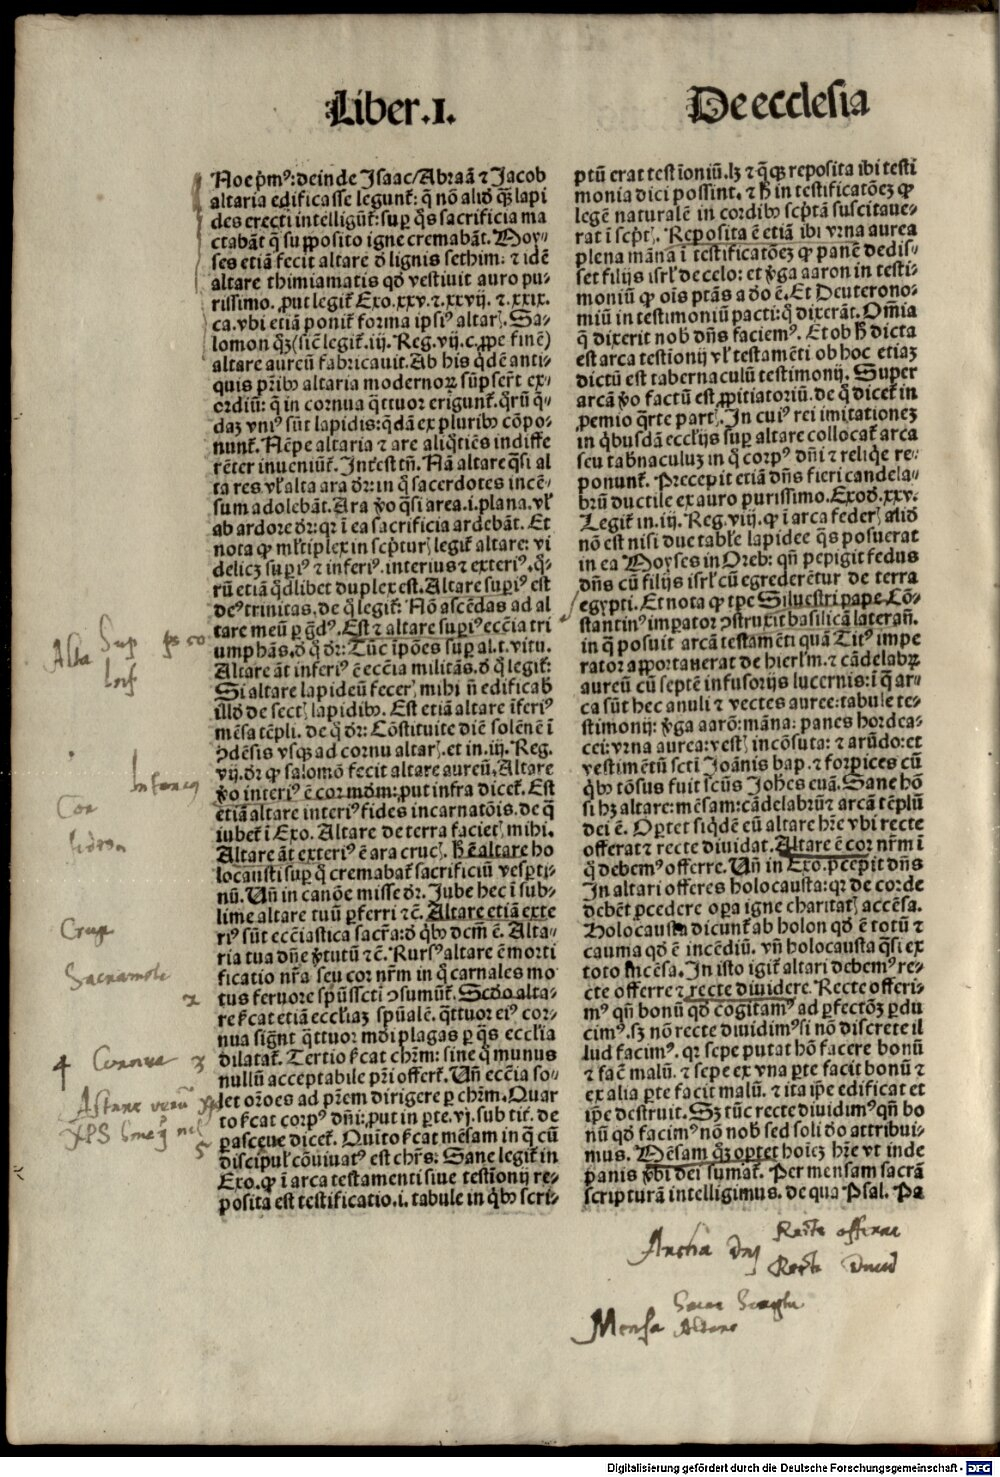 Liber .I.
De ecclesia
Noe pͥmꝰ: deinde Isaac/ Abraā ⁊ Jacob
altaria edificasse legunt̃: q̄ nō aliđ qȝ̄ lapi
des erecti intelligūt̃: suꝑ q̄s sacrificia ma
ctabāt q̄ supposito igne cremabāt. Moy⸗
ses etiā fecit altare ď lignis sethim: ⁊ idē
altare thimiamatis qđ vestiuit auro pu⸗
rissimo. ꝓut legit̃ Exo.xxv.⁊.xxvij. ⁊.xxix.
ca. vbi etiā ponit̃ forma ipsiꝰ altarꝭ. Sa⸗
lomon qȝ (sic̄ legit̃.iij. Reg. vij.c. ꝓpe finē)
altare aureū fabricauit. Ab his qͥdē anti⸗
quis pr̄ibꝰ altaria modernoꝝ sūpserūt ex⸗
ordiū: q̄ in cornua q̄ttuor erigunt̃. qͦrū q̄⸗
dā vniꝰ sūt lapidis: q̄dā ex pluribꝰ cōpo⸗
nunt̃. Nēpe altaria ⁊ are aliqͦtiēs indiffe
rēter inueniūt̃. Int̃est tn̄. Nā altare q̄si al
ta res vl̓ alta ara dr̄: in q̄ sacerdotes incē⸗
sum adolebāt. Ara v̓o q̄si area.i. plana. vl̓
ab ardore dr̄: qr ī ea sacrificia ardebāt. Et
nota ꝙ ml̓tiplex in scp̄turꝭ legit̃ altare: vi
delicȝ supiꝰ ⁊ inferiꝰ. interius ⁊ exteriꝰ. qͦ⸗
rū etiā qͦdlibet duplex est. Altare supiꝰ est
deꝰ trinitas. de q̄ legit̃: Nō ascēdas ad al
tare meū ꝑ gͣdꝰ. Est ⁊ altare supiꝰ ecc̄ia tri
umphās. ď q̄ dr̄: Tūc īpōes suꝑ al. t. vitu.
Altare āt inferiꝰ ē ecc̄ia militās. ď q̄ legit̃:
Si altare lapideū fecerꝭ mihi n̄ edificabꝭ
illđ de sectꝭ lapidibꝰ. Est etiā altare īferiꝰ
mēsa tēpli. de q̄ dr̄: Cōstituite diē solēnē ī
ꝯdēsis vsqȝ ad cornu altarꝭ. et in.iij. Reg.
vij. dr̄ ꝙ salomō fecit altare aureū. Altare
v̓o interiꝰ ē cor mdm̄: ꝓut infra dicet̃. Est
etiā altare interiꝰ fides incarnatōis. de q̄
iubet̃ ī Exo. Altare de terra facietꝭ mihi.
Altare āt exteriꝰ ē ara crucꝭ. h̄ ē altare ho
locausti suꝑ q̄ cremabat̃ sacrificiū vesꝑti⸗
nū. Vn̄ in canōe misse dr̄. Jube hec ī sub⸗
lime altare tuū ꝑferri ⁊c̄. Altare etiā exte
riꝰ sūt ecc̄iastica sacra: ď qͥbꝰ dcm̄ ē. Alta⸗
ria tua dn̄e v̓tutū ⁊c̄. Rursꝰ altare ē morti
ficatio nr̄a seu cor nr̄m in q̄ carnales mo
tus feruore sp̄ūssc̄ti ꝯsumūt̃. Scđo alta⸗
re sͥcat etiā eccl̓iaȝ sp̄ualē. q̄ttuor eiꝰ cor⸗
nua sigūt q̄ttuor mdi plagas ꝑ q̄s eccl̓ia
dilatat̃. Tertio sͥcat chr̄m: sine q̄ munus
nullū acceptabile pr̄i offert̃. Vn̄ ecc̄ia so⸗
let or̄oes ad pr̄em dirigere ꝑ chr̄m. Quar
to sͥcat corpꝰ dn̄i: ꝓut in ꝑte. vj. sub tit̓. de
pasceue dicet̃. Quīto sͥcat mēsam in q̄ cū
discipul̓ cōuiuatꝰ est chr̄s. Sane legit̃ in
Exo. ꝙ ī arca testamenti siue testīonij re⸗
posita est testificatio.i. tabule in qͥbꝰ scri⸗
ptū erat testīoniū. lȝ ⁊ q̄qȝ reposita ibi testi
monia dici possint. ⁊ h̄ in testificatōeȝ ꝙ
legē naturalē in cordibꝰ scp̄tā suscitaue⸗
rat ī scp̄tꝭ. Reposita ē etiā ibi vrna aurea
plena māna ī testificatōeȝ ꝙ panē dedis⸗
set filijs isrl̓ de celo: et v̓ga aaron in testi⸗
moniū ꝙ oīs ptās a dō ē. Et Deuterono⸗
miū in testimoniū pacti: q̄ dixerāt. Om̄ia
q̄ dixerit nob̄ dn̄s faciemꝰ. Et ob h̄ dicta
est arca testionij vl̓ testamēti ob hoc etiaȝ
dictū est tabernaculū testimonij. Super
arcā v̓o factū est ꝓpitiatoriū. de q̄ dicet̃ in
ꝓemio q̄rte partꝭ. In cuiꝰ rei imitationeȝ
in qͥbusdā eccl̓ijs suꝑ altare collocat̃ arca
seu tab̄naculuȝ in q̄ corpꝰ dn̄i ⁊ reliqͥe re⸗
ponunt̃. Precepit etiā dn̄s fieri candela⸗
brū ductile ex auro purissimo. Exođ. xxv.
Legit̃ in.iij. Reg. viij. ꝙ ī arca federꝭ aliđ
nō est nisi due tabl̓e lapidee q̄s posuerat
in ea Moyses in Oreb: qn̄ pepigit fedus
dn̄s cū filijs isrl̓ cū egrederētur de terra
egypti. Et nota ꝙ tꝑe Siluestri pape Cō⸗
stantinꝰ imꝑator ꝯstruxit basilicā laterañ.
in q̄ posuit arcā testamēti quā Titꝰ impe
rator apportauerat de hierl̓m. ⁊ cādelabꝝ
aureū cū septē infusorijs lucernis: ī q̄ ar⸗
ca sūt hec anuli ⁊ vectes auree: tabule te⸗
stimonij: v̓ga aarō: māna: panes hordea⸗
cei: vrna aurea: vestꝭ incōsuta: ⁊ arūdo: et
vestimētū sc̄ti Joānis bap. ⁊ forpices cū
qͥbꝰ tōsus fuit sc̄us Joh̄es euā. Sane hō
si hȝ altare: mēsam: cādelabrū ⁊ arcā tēplū
dei ē. Oꝑtet siqͥdē eū altare hr̄e vbi recte
offerat ⁊ recte diuidat. Altare ē cor nr̄m ī
q̄ debemꝰ offerre. Vn̄ in Exo. p̄cepit dn̄s
In altari offeres holocausta: qr de corde
debēt ꝓcedere oꝑa igne charitatꝭ accēsa.
Holocausta dicunt̃ ab holon qđ ē totū ⁊
cauma qđ ē incēdiū. vn̄ holocausta q̄si ex
toto incēsa. In isto igit̃ altari debemꝰ re⸗
cte offerre ⁊ recte diuidere. Recte offeri⸗
mꝰ qn̄ bonū qđ cogitamꝰ ad ꝑfectōȝ ꝑdu
cimꝰ. sȝ nō recte diuidimꝰ si nō discrete il
lud facimꝰ. qr sepe putat hō facere bonū
⁊ fac̄ malū. ⁊ sepe ex vna ꝑte facit bonū ⁊
ex alia ꝑte facit malū. ⁊ ita ip̄e edificat et
ip̄e destruit. Sȝ tūc recte diuidimꝰ qn̄ bo
nū qđ facimꝰ nō nob̄ sed soli dō attribui⸗
mus. Mēsam qͦȝ oꝑtet hoīeȝ hr̄e vt inde
panis v̓bi dei sumat̃. Per mensam sacrā
scripturā intelligimus. de qua Psal. Pa
Alta
Sup
Inf
Cor
Crux
Sacramēte
2
4 Cornua 3
5
Archa Dnj
Recte offerat
Recte
Mensa
Digitalisierung gefördert durch die Deutsche Forschungsgemeinschaft - DFG